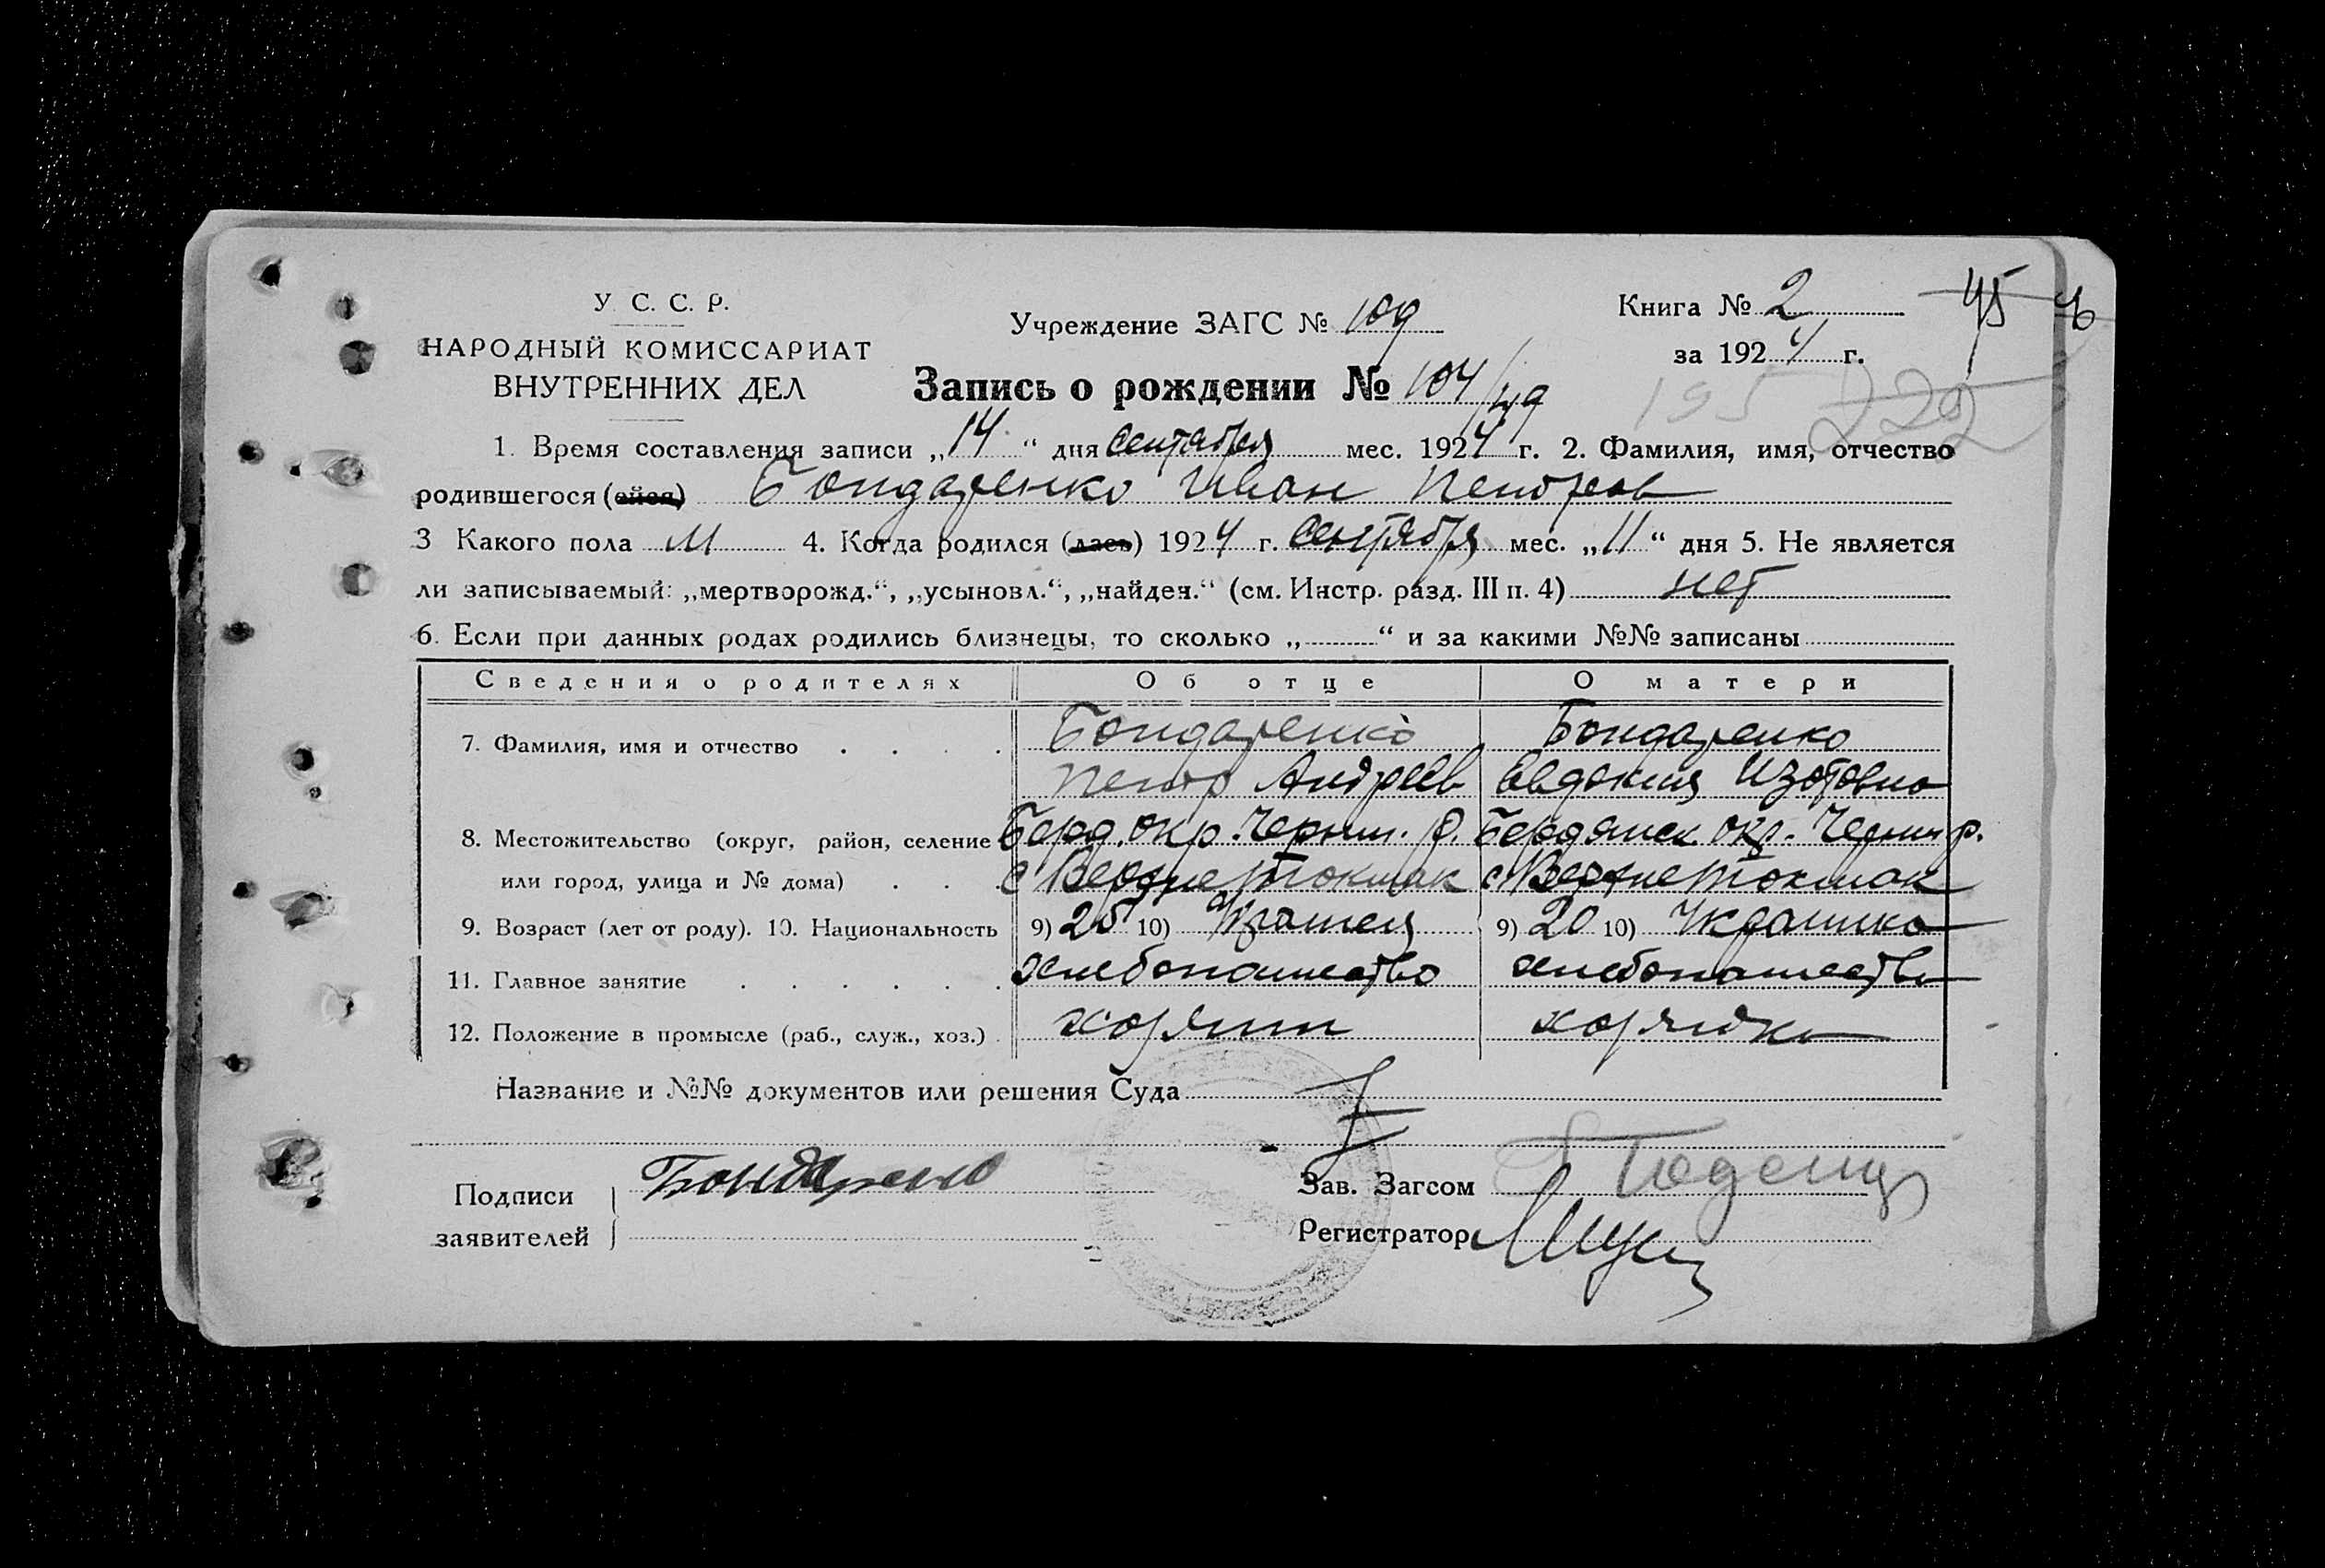 У. С. С. Р.
НАРОДНЫЙ КОМИССАРИАТ
ВНУТРЕННИХ ДЕЛ
Учреждение ЗАГС № 109
Книга № 2
за 1924 г.
45
Запись о рождении № 104/49
195 222
1. Время составления записи „14“ дня сентября мес. 1924 г. 2. Фамилия, имя, отчество
родившегося (ейся) Бондаренко Иван Петров
3 Какого пола М 4. Когда родился (лась) 1924 г. сентября мес. „11“ дня 5. Не является
ли записываемый: „мертворожд.“, „усыновл.“, „найден.“ (см. Инстр. разд. III п. 4) нет
6. Если при данных родах родились близнецы, то сколько „ “ и за какими №№ записаны
Сведения о родителях Об отце О матери
7. Фамилия, имя и отчество . . . . Бондаренко Бондаренко
Петр Андреев Евдокия Изотовна
8. Местожительство (округ, район, селение Берд. окр. Черниг. р. Бердянск. окр. Черниг р.
или город, улица и № дома) . . . с Верхне Токмак с Верхне Токмак
9. Возраст (лет от роду). 10. Национальность 9) 25 10) 9) 20 10) Украинка
11. Главное занятие . . . . . . хлебопашество хлебопашество
12. Положение в промысле (раб., служ., хоз.) .
Название и №№ документов или решения Суда
Подписи Бондаренко Зав. Загсом
заявителей Регистратор